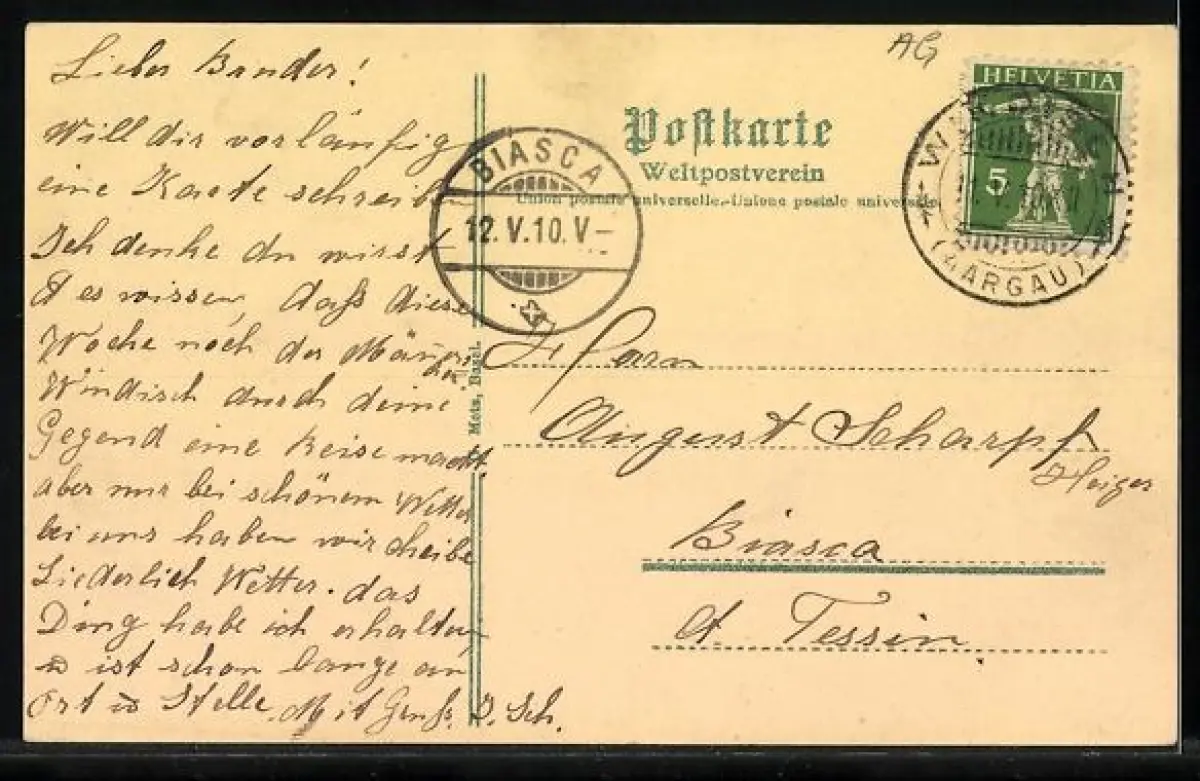 Lieber Bruder!
Will dir vorläufig
eine Karte schreiben
Ich denke du wirst
es wissen, daß diese
Woche noch der
Windisch durch deine
Gegend eine Reise macht
aber nur bei schönem Wetter
bei uns haben wir cheibe
Liederlich Wetter. das
Ding habe ich erhalten
es ist schon lange an
Ort Stelle. Mit Gruß. J. Sch.
AG
HELVETIA
5
(AARGAU)
Postkarte
Weltpostverein
Union postale universelle.-Unione postale universale.
BIASCA
12.V.10.V-
Metz, Basel.
August Scharpf
Heizer
Biasca
Ct. Tessin